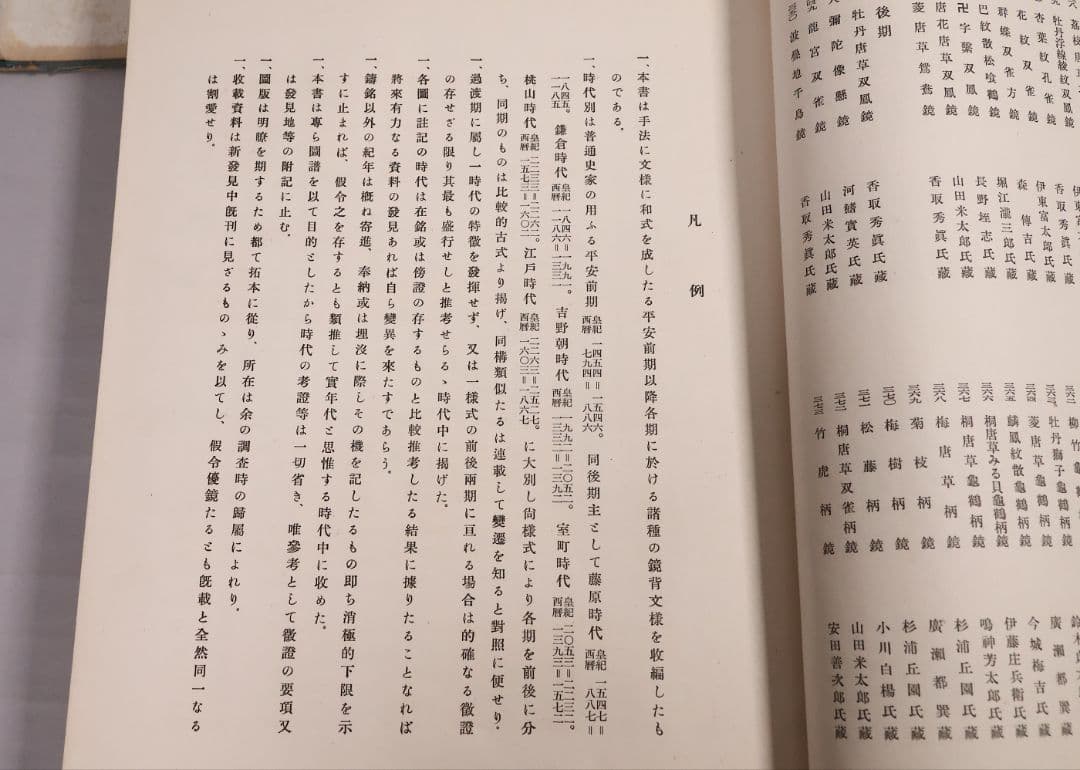 杏葉紋孔雀鏡
伊東富太郎氏藏
花紋双雀鏡
森傳吉氏藏
群蝶双雀方鏡
堀江瀧三郎氏藏
巴紋散松喰鶴鏡
長野垤志氏藏
卍字繋双鳳鏡
山田米太郎氏藏
唐花唐草双鳳鏡
香取秀眞氏藏
菱唐草鴛鴦鏡
後期
牡丹唐草双鳳鏡
香取秀眞氏藏
彌陀像懸鏡
河鰭實英氏藏
龍宮双雀鏡
山田米太郎氏藏
波疊地千鳥鏡
香取秀眞氏藏
三六三 牡丹獅子龜鶴柄鏡
廣瀬都巽氏藏
三六四 菱唐草龜鶴柄鏡
今城梅吉氏藏
三六五 麟鳳紋散龜鶴柄鏡
伊藤庄兵衛氏藏
三六六 桐唐草みる貝龜鶴柄鏡
鳴神芳太郎氏藏
三六七 桐唐草龜鶴柄鏡
杉浦丘園氏藏
三六八 梅唐草柄鏡
廣瀬都巽氏藏
三六九 菊枝柄鏡
杉浦丘園氏藏
三七〇 梅樹柄鏡
小川白楊氏藏
三七一 松藤柄鏡
山田米太郎氏藏
三七二 桐唐草双雀柄鏡
安田善次郎氏藏
三七三 竹虎柄鏡
凡例
一、本書は手法に文樣に和式を成したる平安前期以降各期に於ける諸種の鏡背文樣を收編したも
のである。
一、時代別は普通史家の用ふる平安前期 皇紀 一四五四=一五四六。西曆 七九四=八八六 同後期主として藤原時代 皇紀 一五四七=西曆 八八七=
一八四五。一一八五 鎌倉時代 皇紀 一八四六=一九九一。西曆 一一八六=一三三一 吉野朝時代 皇紀 一九九二=二〇五二。西曆 一三三二=一三九二 室町時代 皇紀 二〇五三=二二三二。西曆 一三九三=一五七二
桃山時代 皇紀 二二三三=二二六二。西曆 一五七三=一六〇二 江戸時代 皇紀 二二六三=二五二七。西曆 一六〇三=一八六七 に大別し尙樣式により各期を前後に分
ち、同期のものは比較的古式より揭げ、同構類似たるは連載して變遷を知ると對照に便せり、
一、過渡期に屬し一時代の特徵を發揮せず、又は一樣式の前後兩期に亘れる場合は的確なる徵證
の存せざる限り其最も盛行せしと推考せらるゝ時代中に揭げた。
一、各圖に註記の時代は在銘或は傍證の存するものと比較推考したる結果に據りたることなれば
將來有力なる資料の發見あれば自ら變異を來たすであらう。
一、鑄銘以外の紀年は概ね寄進、奉納或は埋沒に際しその機を記したるもの即ち消極的下限を示
すに止まれば、假令之を存するとも類推して實年代と思惟する時代中に收めた。
一、本書は專ら圖譜を以て目的としたから時代の考證等は一切省き、唯參考として徵證の要項又
は發見地等の附記に止む、
一、圖版は明瞭を期するため都て拓本に從り、所在は余の調査時の歸屬によれり、
一、收載資料は新發見中旣刊に見ざるものゝみを以てし、假令優鏡たるとも旣載と全然同一なる
は割愛せり。